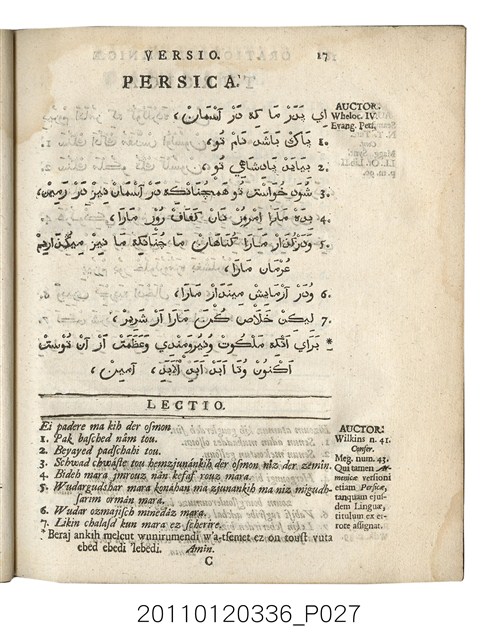 VERSIO. 17
PERSICA.
اي پدر ما كه در آسمان،
1. پاك باشد نام تو،
2. بيايد پادشاهي تو،
3. شود خواست تو همچنانكه در آسمان نيز در زمين،
4. بده مارا امروز نان كفاف روز مارا،
5. ودرگذار مارا گناهان ما چنانكه ما نيز ميگذاريم
عرمان مارا،
6. ودر آزمايش مينداز مارا،
7. ليكن خلاص كن مارا از شرير،
* براي آنكه ملكوت ونيرومندي وعظمت از آن توست
اكنون وتا ابد ابد لابد، آمين،
AUCTOR.
Wheloc. IV.
Evang. Pers.
LECTIO.
Ei padere ma kih der osmon
1. Pak basched nám tou.
2. Beyayed padschahi tou.
3. Schwad chwáste tou hemzjunánkih der osmon niz der zemin.
4. Bidéh mara jmrouz nán kefaf rouz mara.
5. Wudargudshar mara konáhan ma zjunankih ma niz migudh-
sarim ormán mara.
6. Wudar ozmajisch minedáz mara.
7. Likin chalasd kun mara ez scherire.
* Beraj ankih melcut wunirumendi w'a-tsemet ez on toust vuta
ebed ebedi 'lebedi. Amin.
AUCTOR:
Wilkins n. 41.
Confer.
Meg. num. 43.
Qui tamen Ar-
menicæ versioni
etiam Persicæ,
tanquam ejus-
dem Linguæ,
titulum ex er-
rore assignat.
C
20110120336_P027